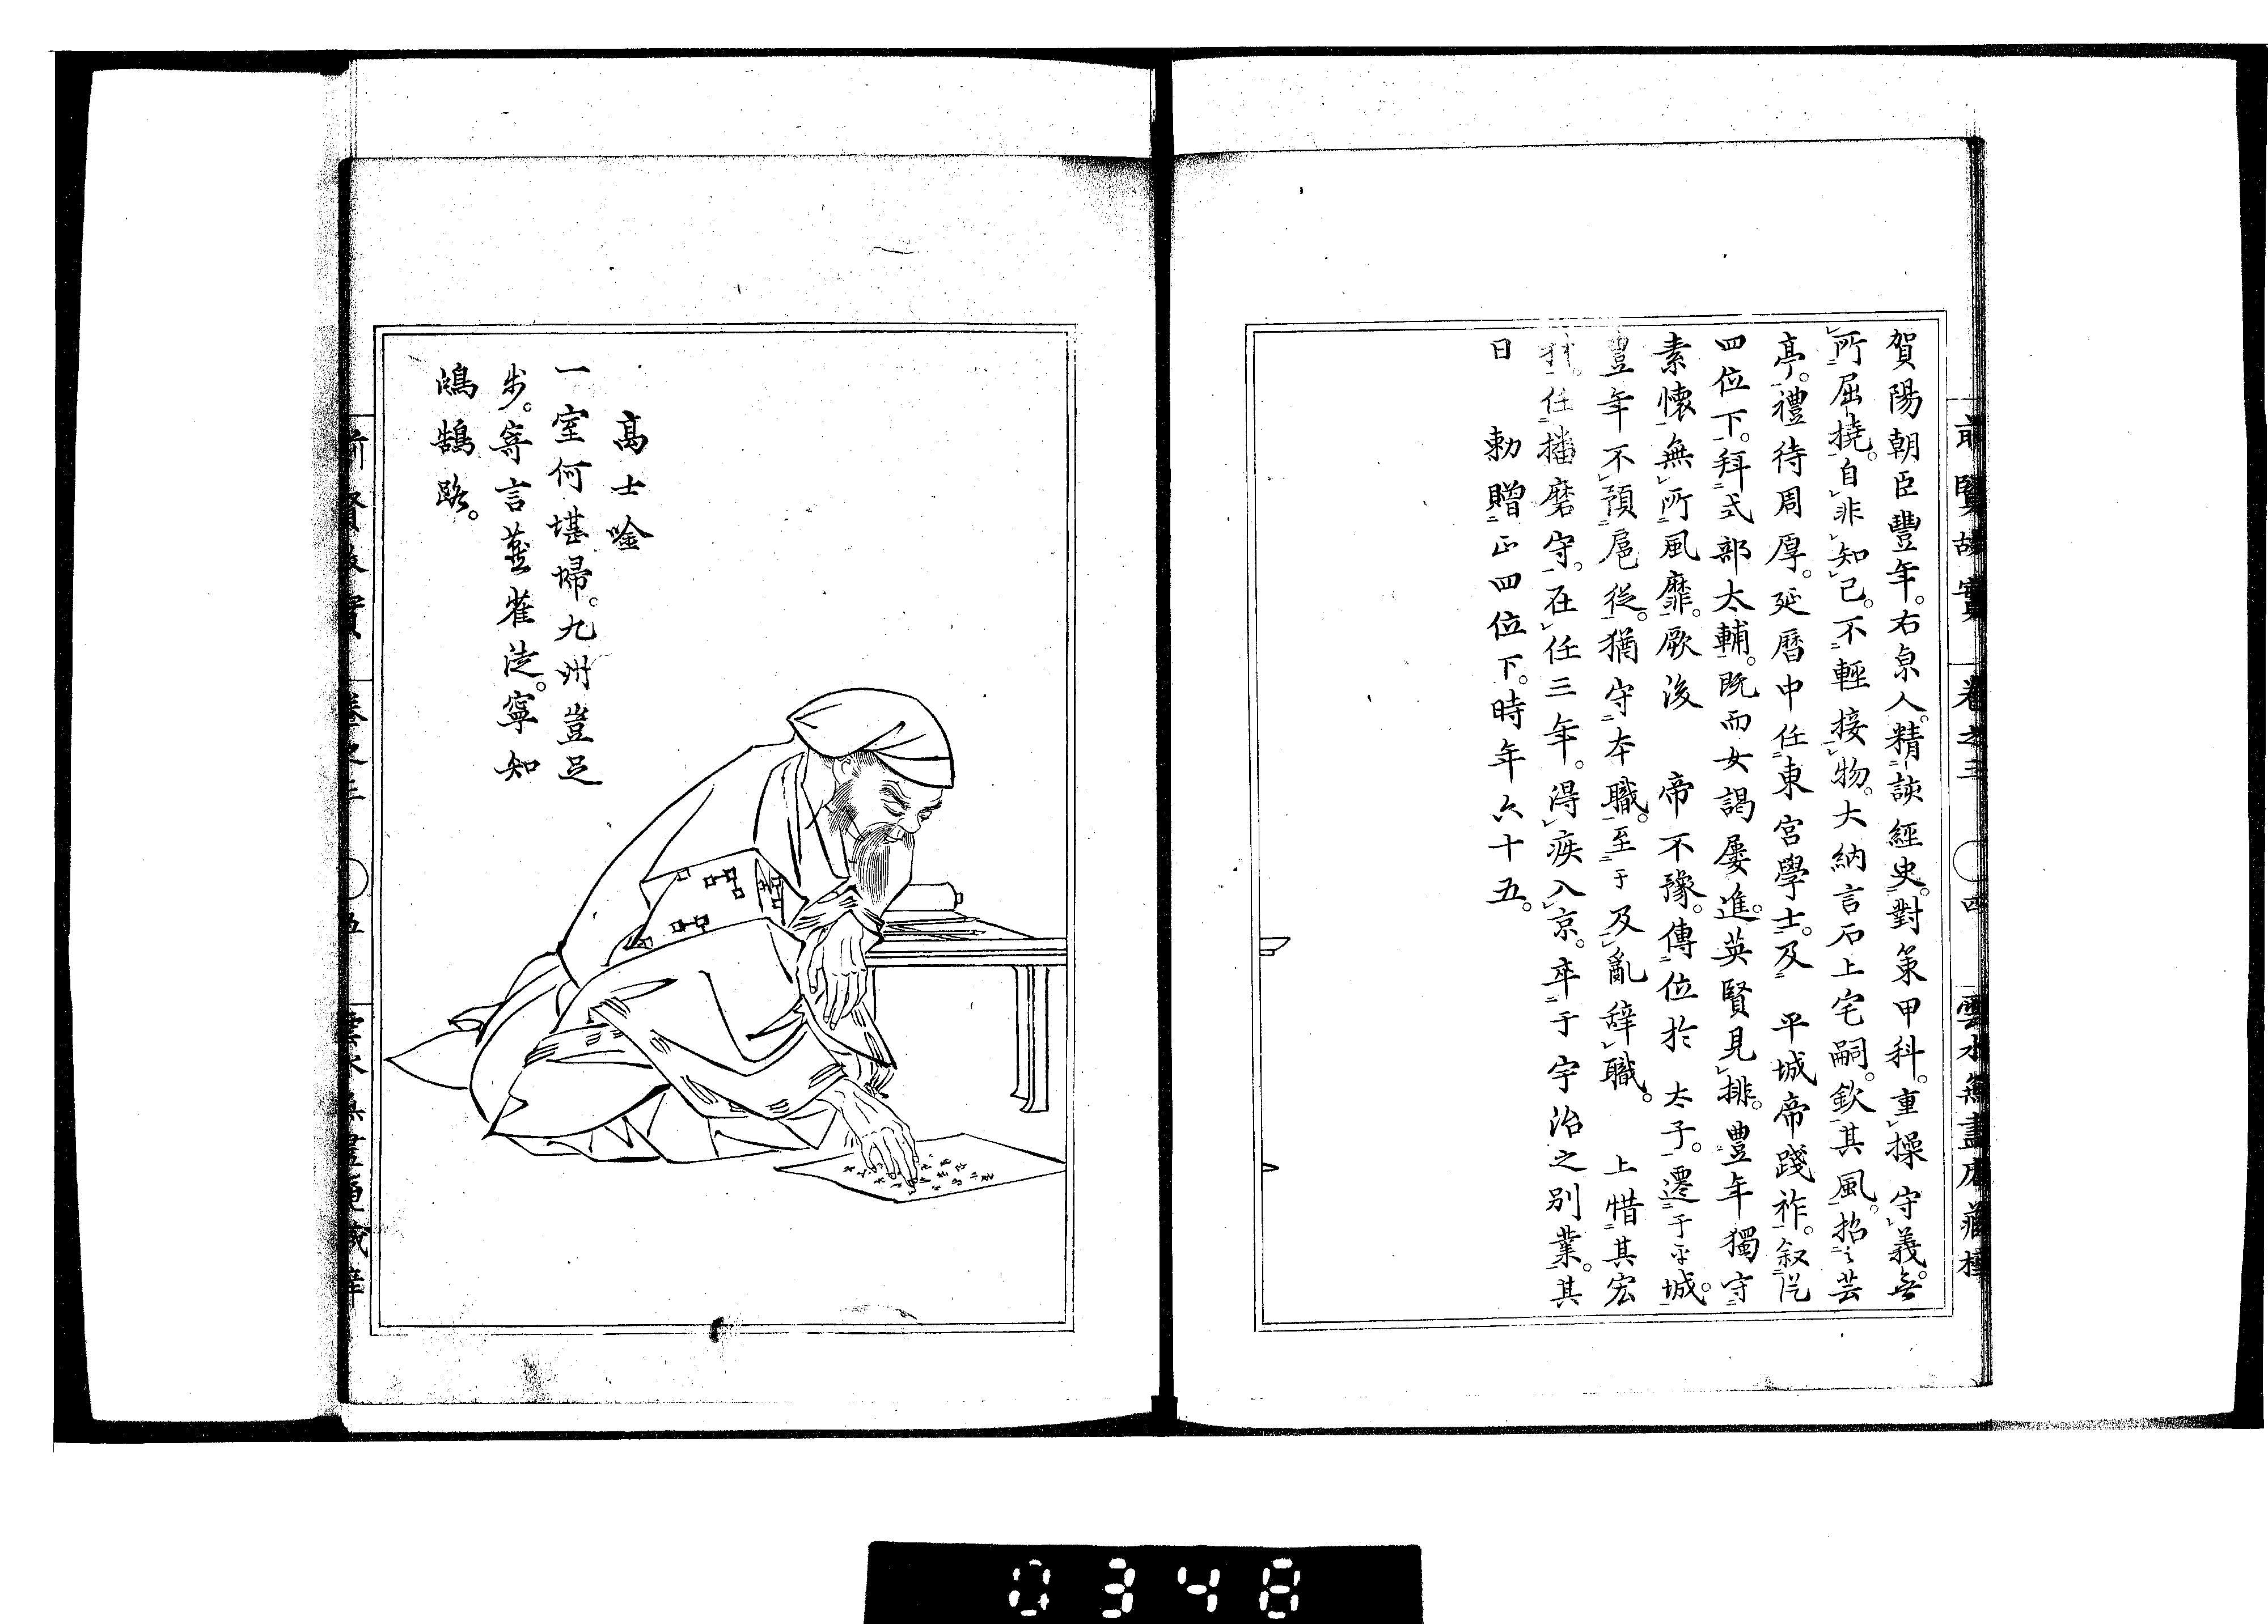 前賢故實 卷之三 ○四 雲水無盡庵藏梓
賀陽朝臣豐年。右京人。精談經史。對策甲科。重操守義。無
所屈撓。自非知己。不輕接物。大納言石上宅嗣。欽其風。招之芸
亭。禮待周厚。延曆中任東宮學士。及 平城帝踐祚。叙從
四位下。拜式部太輔。既而女謁屢進。英賢見排。豊年獨守
素懷。無所風靡。厥後 帝不豫。傳位於 太子。遷于平城。
豊年不預扈從。猶守本職。至于及亂辭職。 上惜其宏
材。任播磨守。在任三年。得疾入京。卒于宇治之別業。其
日 勅贈正四位下。時年六十五。
高士唫
一室何堪埽。九州豈足
步。寄言燕雀徒。寧知
鴻鵠路。
前賢故實 卷之三 ○五 雲水無盡庵藏梓
0348